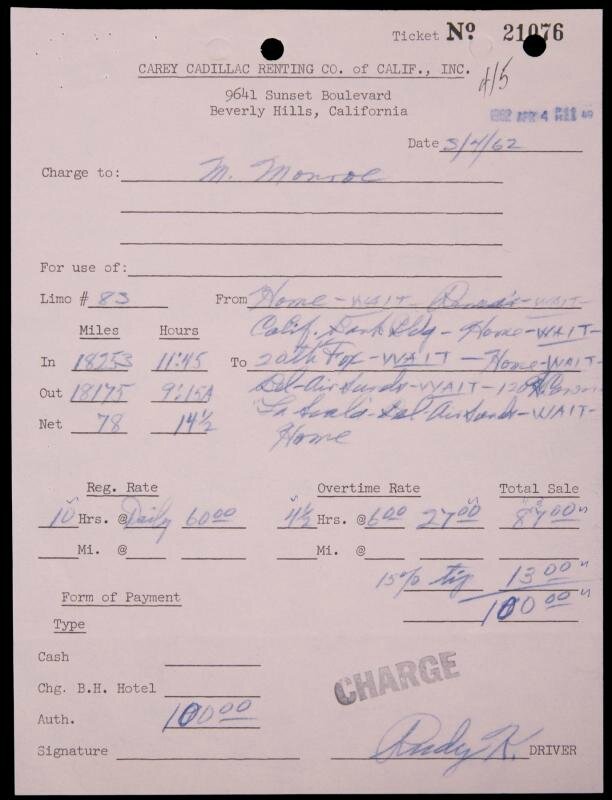 Ticket Nº 21076
CAREY CADILLAC RENTING CO. of CALIF., INC.
4/5
9641 Sunset Boulevard
Beverly Hills, California
1962 APR 4
Date 3/4/62
Charge to: M. Monroe
For use of:
Limo # 83 From Home-WAIT-
-WAIT-
Miles Hours Calif. Bank Bldg - Home-WAIT-
In 18253 11:45 To 20th Fox-WAIT-Home-WAIT-
Out 18175 9:15A Bel-Air Sands-WAIT-
Net 78 14½ La Scala-Bel-Air Sands-WAIT-
Home
Reg. Rate Overtime Rate Total Sale
10 Hrs. @ Daily 60.00 4½ Hrs. @ 6.00 27.00 87.00
Mi. @ Mi. @
15% tip 13.00
Form of Payment 100.00
Type
Cash
Chg. B.H. Hotel CHARGE
Auth. 100.00
Signature Rudy K. DRIVER